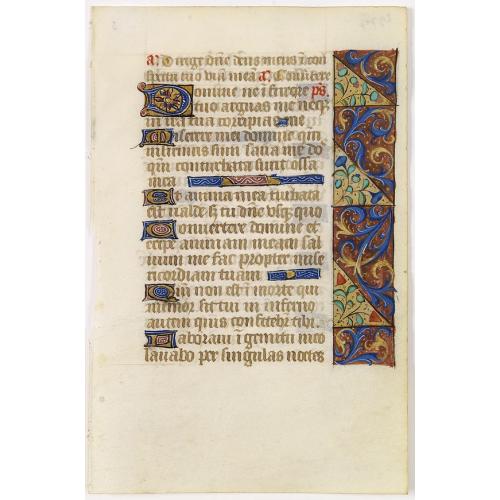 a. Dirige dñe deus meus i con
spectu tuo viã meã a. Convertere
Domine ne i furore ps.
tuo arguas me neq
in ira tua corripias me
Miserere mei domine qm
infirmus sum sana me do
qm conturbata sunt ossa
mea
Et anima mea turbata
est valde s tu dñe usq quo
Convertere domine et
eripe animam meam sal
vum me fac propter mise
ricordiam tuam
Qm non est i morte qui
memor sit tui in inferno
autem quis confitebr tibi
Laboravi i gemitu meo
lavabo per singulas noctes